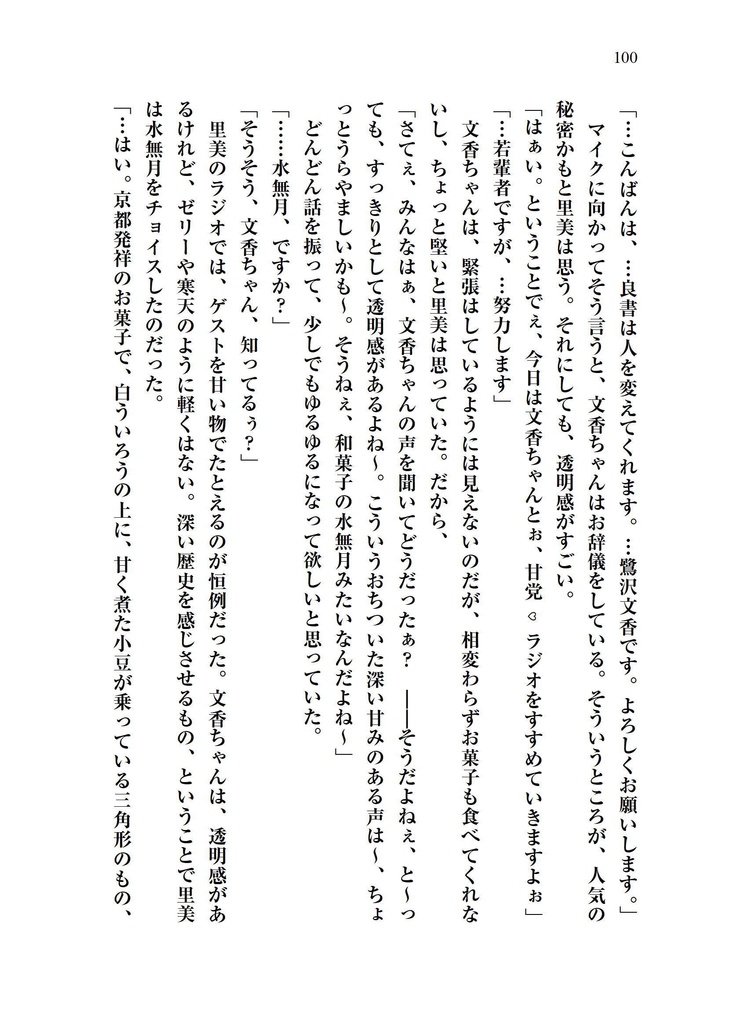 100
「…こんばんは、…良書は人を変えてくれます。…鷺沢文香です。よろしくお願いします。」
マイクに向かってそう言うと、文香ちゃんはお辞儀をしている。そういうところが、人気の
秘密かもと里美は思う。それにしても、透明感がすごい。
「はぁい。ということでぇ、今日は文香ちゃんとぉ、甘党♡ラジオをすすめていきますよぉ」
「…若輩者ですが、…努力します」
文香ちゃんは、緊張はしているようには見えないのだが、相変わらずお菓子も食べてくれな
いし、ちょっと堅いと里美は思っていた。だから、
「さてぇ、みんなはぁ、文香ちゃんの声を聞いてどうだったぁ？　――そうだよねぇ、と～っ
ても、すっきりとして透明感があるよね～。こういうおちついた深い甘みのある声は～、ちょ
っとうらやましいかも～。そうねぇ、和菓子の水無月みたいなんだよね～」
どんどん話を振って、少しでもゆるゆるになって欲しいと思っていた。
「……水無月、ですか？」
「そうそう、文香ちゃん、知ってるぅ？」
里美のラジオでは、ゲストを甘い物でたとえるのが恒例だった。文香ちゃんは、透明感があ
るけれど、ゼリーや寒天のように軽くはない。深い歴史を感じさせるもの、ということで里美
は水無月をチョイスしたのだった。
「…はい。京都発祥のお菓子で、白ういろうの上に、甘く煮た小豆が乗っている三角形のもの、